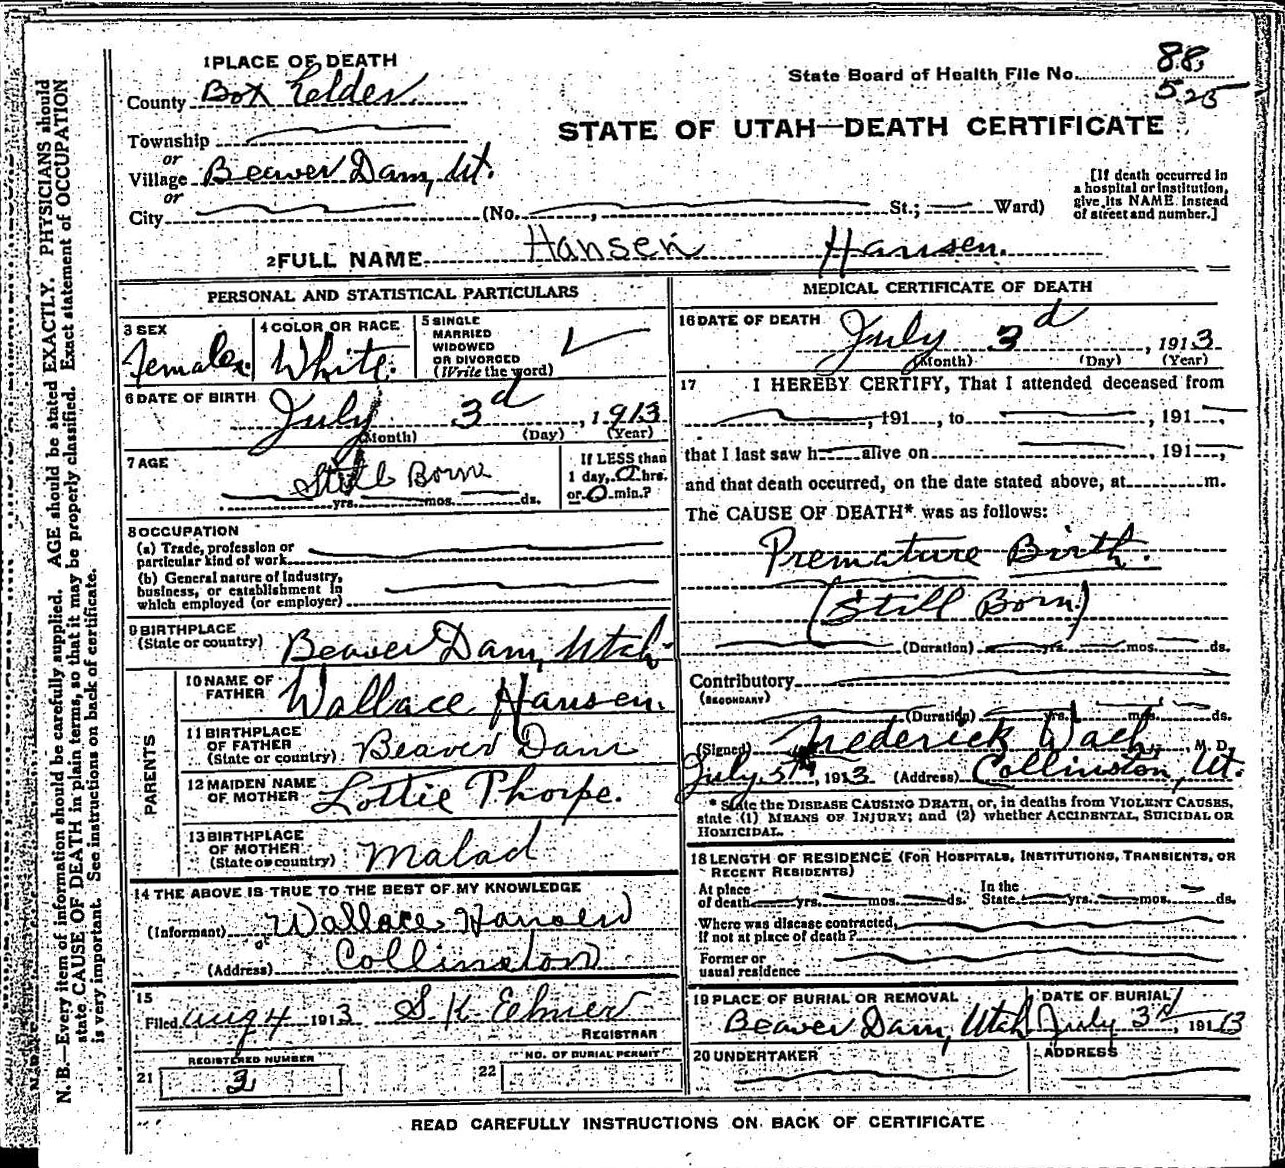 1 PLACE OF DEATH
County Box Elder
Township
or
Village Beaver Dam, Ut.
or
City (No. , St.; Ward)
State Board of Health File No. 88
525
STATE OF UTAH—DEATH CERTIFICATE
[If death occurred in
a hospital or institution,
give its NAME instead
of street and number.]
2 FULL NAME Hansen Hansen.
PERSONAL AND STATISTICAL PARTICULARS
3 SEX
Female.
4 COLOR OR RACE
White.
5 SINGLE
MARRIED
WIDOWED
OR DIVORCED
(Write the word)
6 DATE OF BIRTH
July 3d, 1913
(Month) (Day) (Year)
7 AGE
Still Born
yrs. mos. ds.
If LESS than
1 day, 0 hrs.
or 0 min.?
8 OCCUPATION
(a) Trade, profession or
particular kind of work
(b) General nature of Industry,
business, or establishment in
which employed (or employer)
9 BIRTHPLACE
(State or country) Beaver Dam, Utah
PARENTS
10 NAME OF
FATHER Wallace Hansen.
11 BIRTHPLACE
OF FATHER
(State or country) Beaver Dam
12 MAIDEN NAME
OF MOTHER Lottie Thorpe.
13 BIRTHPLACE
OF MOTHER
(State or country) Malad
14 THE ABOVE IS TRUE TO THE BEST OF MY KNOWLEDGE
(Informant) Wallace Hansen
(Address) Collinston
15
Filed Aug 4 1913 S. K.
REGISTRAR
REGISTERED NUMBER
21 3
NO. OF BURIAL PERMIT
22
MEDICAL CERTIFICATE OF DEATH
16 DATE OF DEATH
July 3d, 1913
(Month) (Day) (Year)
17 I HEREBY CERTIFY, That I attended deceased from
, 191 , to , 191
that I last saw h alive on , 191 ,
and that death occurred, on the date stated above, at m.
The CAUSE OF DEATH* was as follows:
Premature Birth.
(Still Born)
(Duration) yrs. mos. ds.
Contributory
(SECONDARY)
(Duration) yrs. mos. ds.
(Signed) Frederick Wach, M. D.
July 5th, 1913 (Address) Collinston, Ut.
* State the DISEASE CAUSING DEATH, or, in deaths from VIOLENT CAUSES,
state (1) MEANS OF INJURY; and (2) whether ACCIDENTAL, SUICIDAL OR
HOMICIDAL.
18 LENGTH OF RESIDENCE (FOR HOSPITALS, INSTITUTIONS, TRANSIENTS, OR
RECENT RESIDENTS)
At place
of death yrs. mos. ds.
In the
State yrs. mos. ds.
Where was disease contracted,
If not at place of death?
Former or
usual residence
19 PLACE OF BURIAL OR REMOVAL
Beaver Dam, Utah
DATE OF BURIAL
July 3d, 1913
20 UNDERTAKER
ADDRESS
READ CAREFULLY INSTRUCTIONS ON BACK OF CERTIFICATE
N. B.—Every item of information should be carefully supplied. AGE should be stated EXACTLY. PHYSICIANS should
state CAUSE OF DEATH in plain terms, so that it may be properly classified. Exact statement of OCCUPATION
is very important. See instructions on back of certificate.